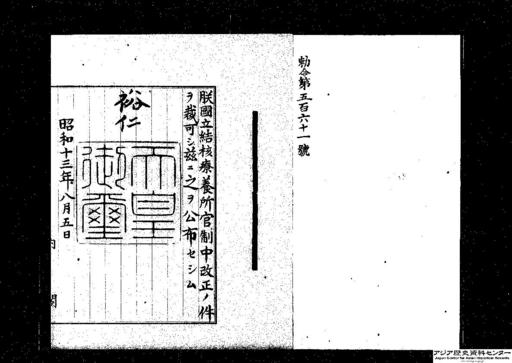 勅令第五百六十一號
朕國立結核療養所官制中改正ノ件
ヲ裁可シ玆ニ之ヲ公布セシム
裕仁
天皇
御璽
昭和十三年八月五日
内閣
アジア歴史資料センター
Japan Center for Asian Historical Records